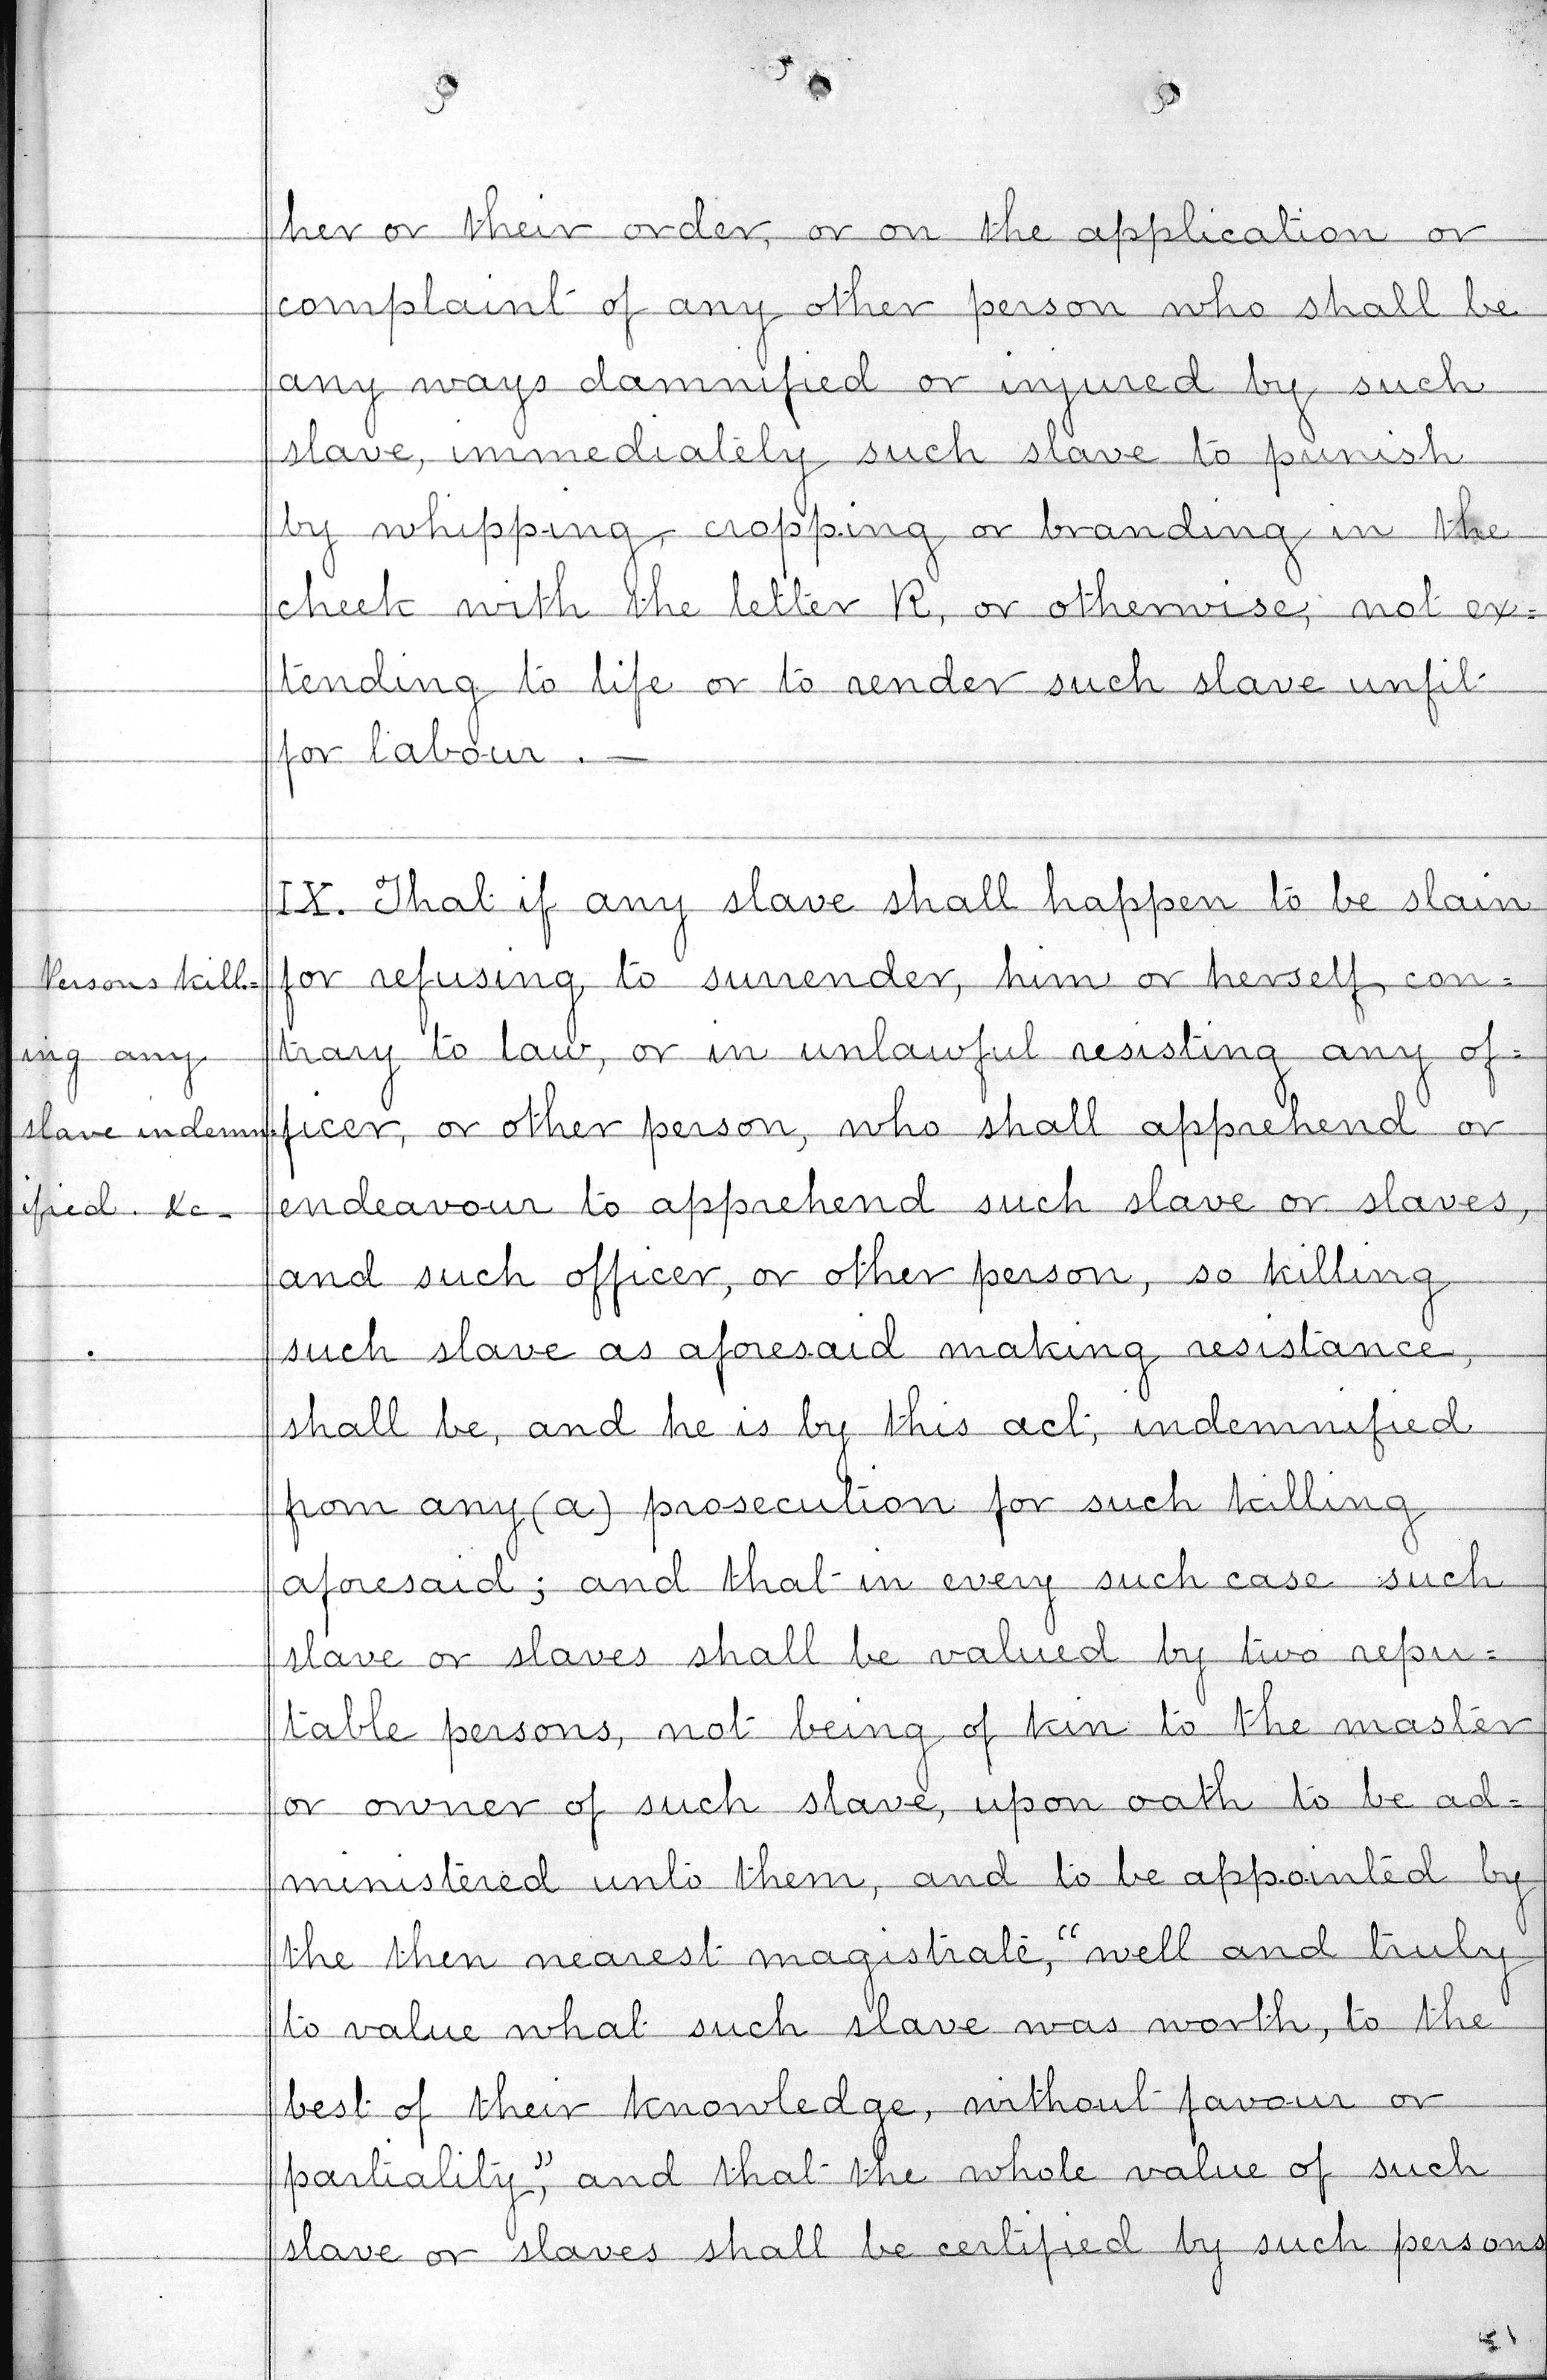 her or their order, or on the application or
complaint of any other person who shall be
any ways damnified or injured by such
slave, immediately such slave to punish
by whipping, cropping or branding in the
cheek with the letter R, or otherwise, not ex=
tending to life or to render such slave unfit
for labour. —
IX. That if any slave shall happen to be slain
for refusing to surrender, him or herself con=
trary to law, or in unlawful resisting any of=
ficer, or other person, who shall apprehend or
endeavour to apprehend such slave or slaves,
and such officer, or other person, so killing
such slave as aforesaid making resistance,
shall be, and he is by this act, indemnified
from any (a) prosecution for such killing
aforesaid; and that in every such case such
slave or slaves shall be valued by two repu=
table persons, not being of kin to the master
or owner of such slave, upon oath to be ad=
ministered unto them, and to be appointed by
the then nearest magistrate, "well and truly
to value what such slave was worth, to the
best of their knowledge, without favour or
partiality", and that the whole value of such
slave or slaves shall be certified by such persons
Persons kill=
ing any
slave indemn=
ified. &c-